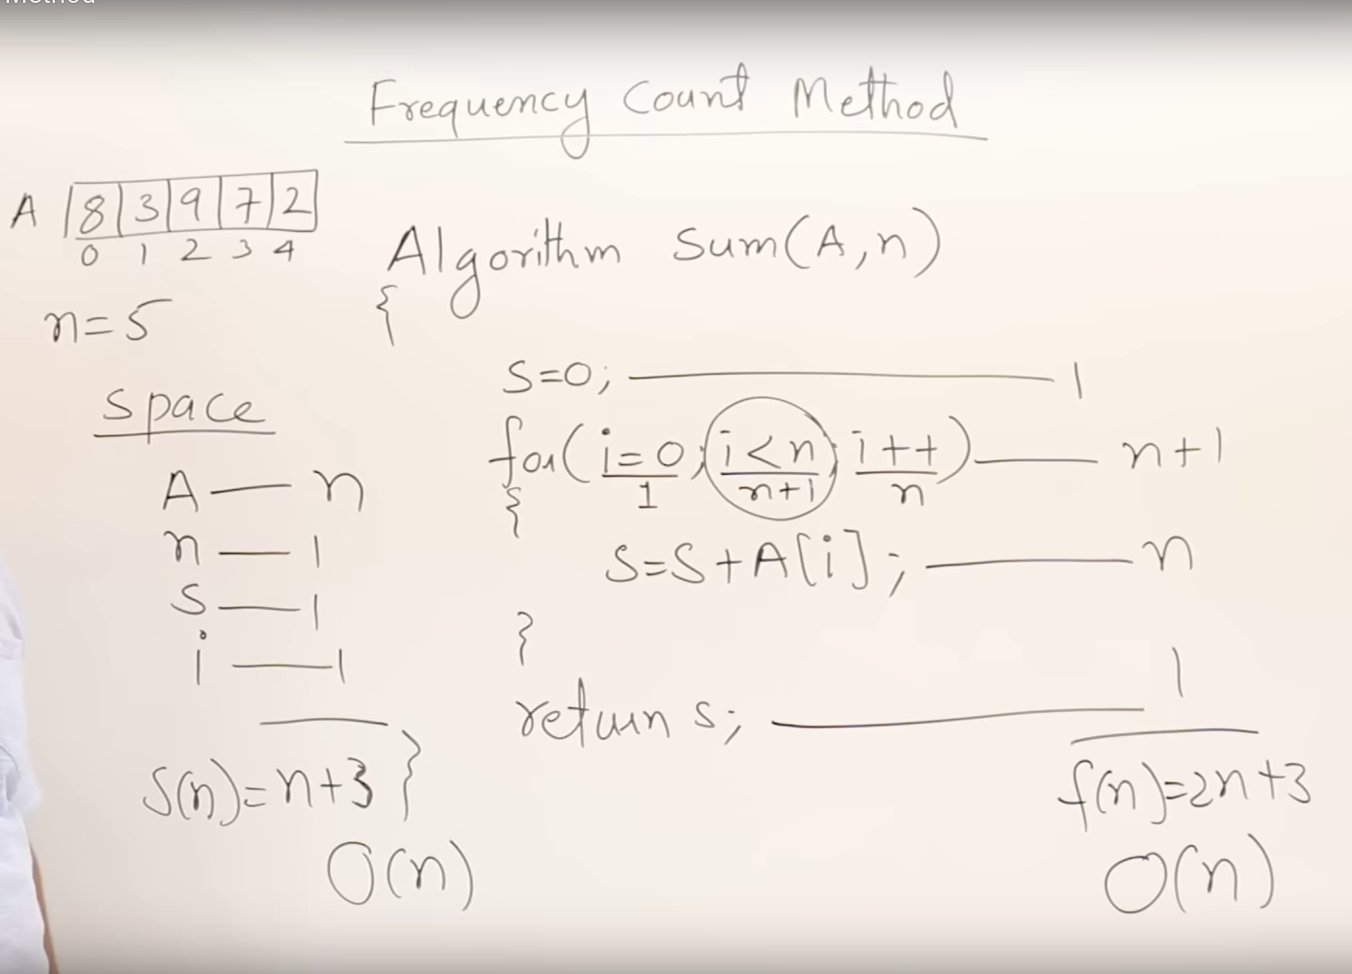 Method
Frequency Count Method
A 8 3 9 7 2
0 1 2 3 4
n=5
Space
A — n
n — 1
S — 1
i — 1
S(n)=n+3 }
O(n)
Algorithm Sum(A,n)
{
S=0; — 1
for(i=0; i<n; i++) — n+1
1 n+1 n
{
S=S+A[i]; — n
}
return s; — 1
f(n)=2n+3
O(n)